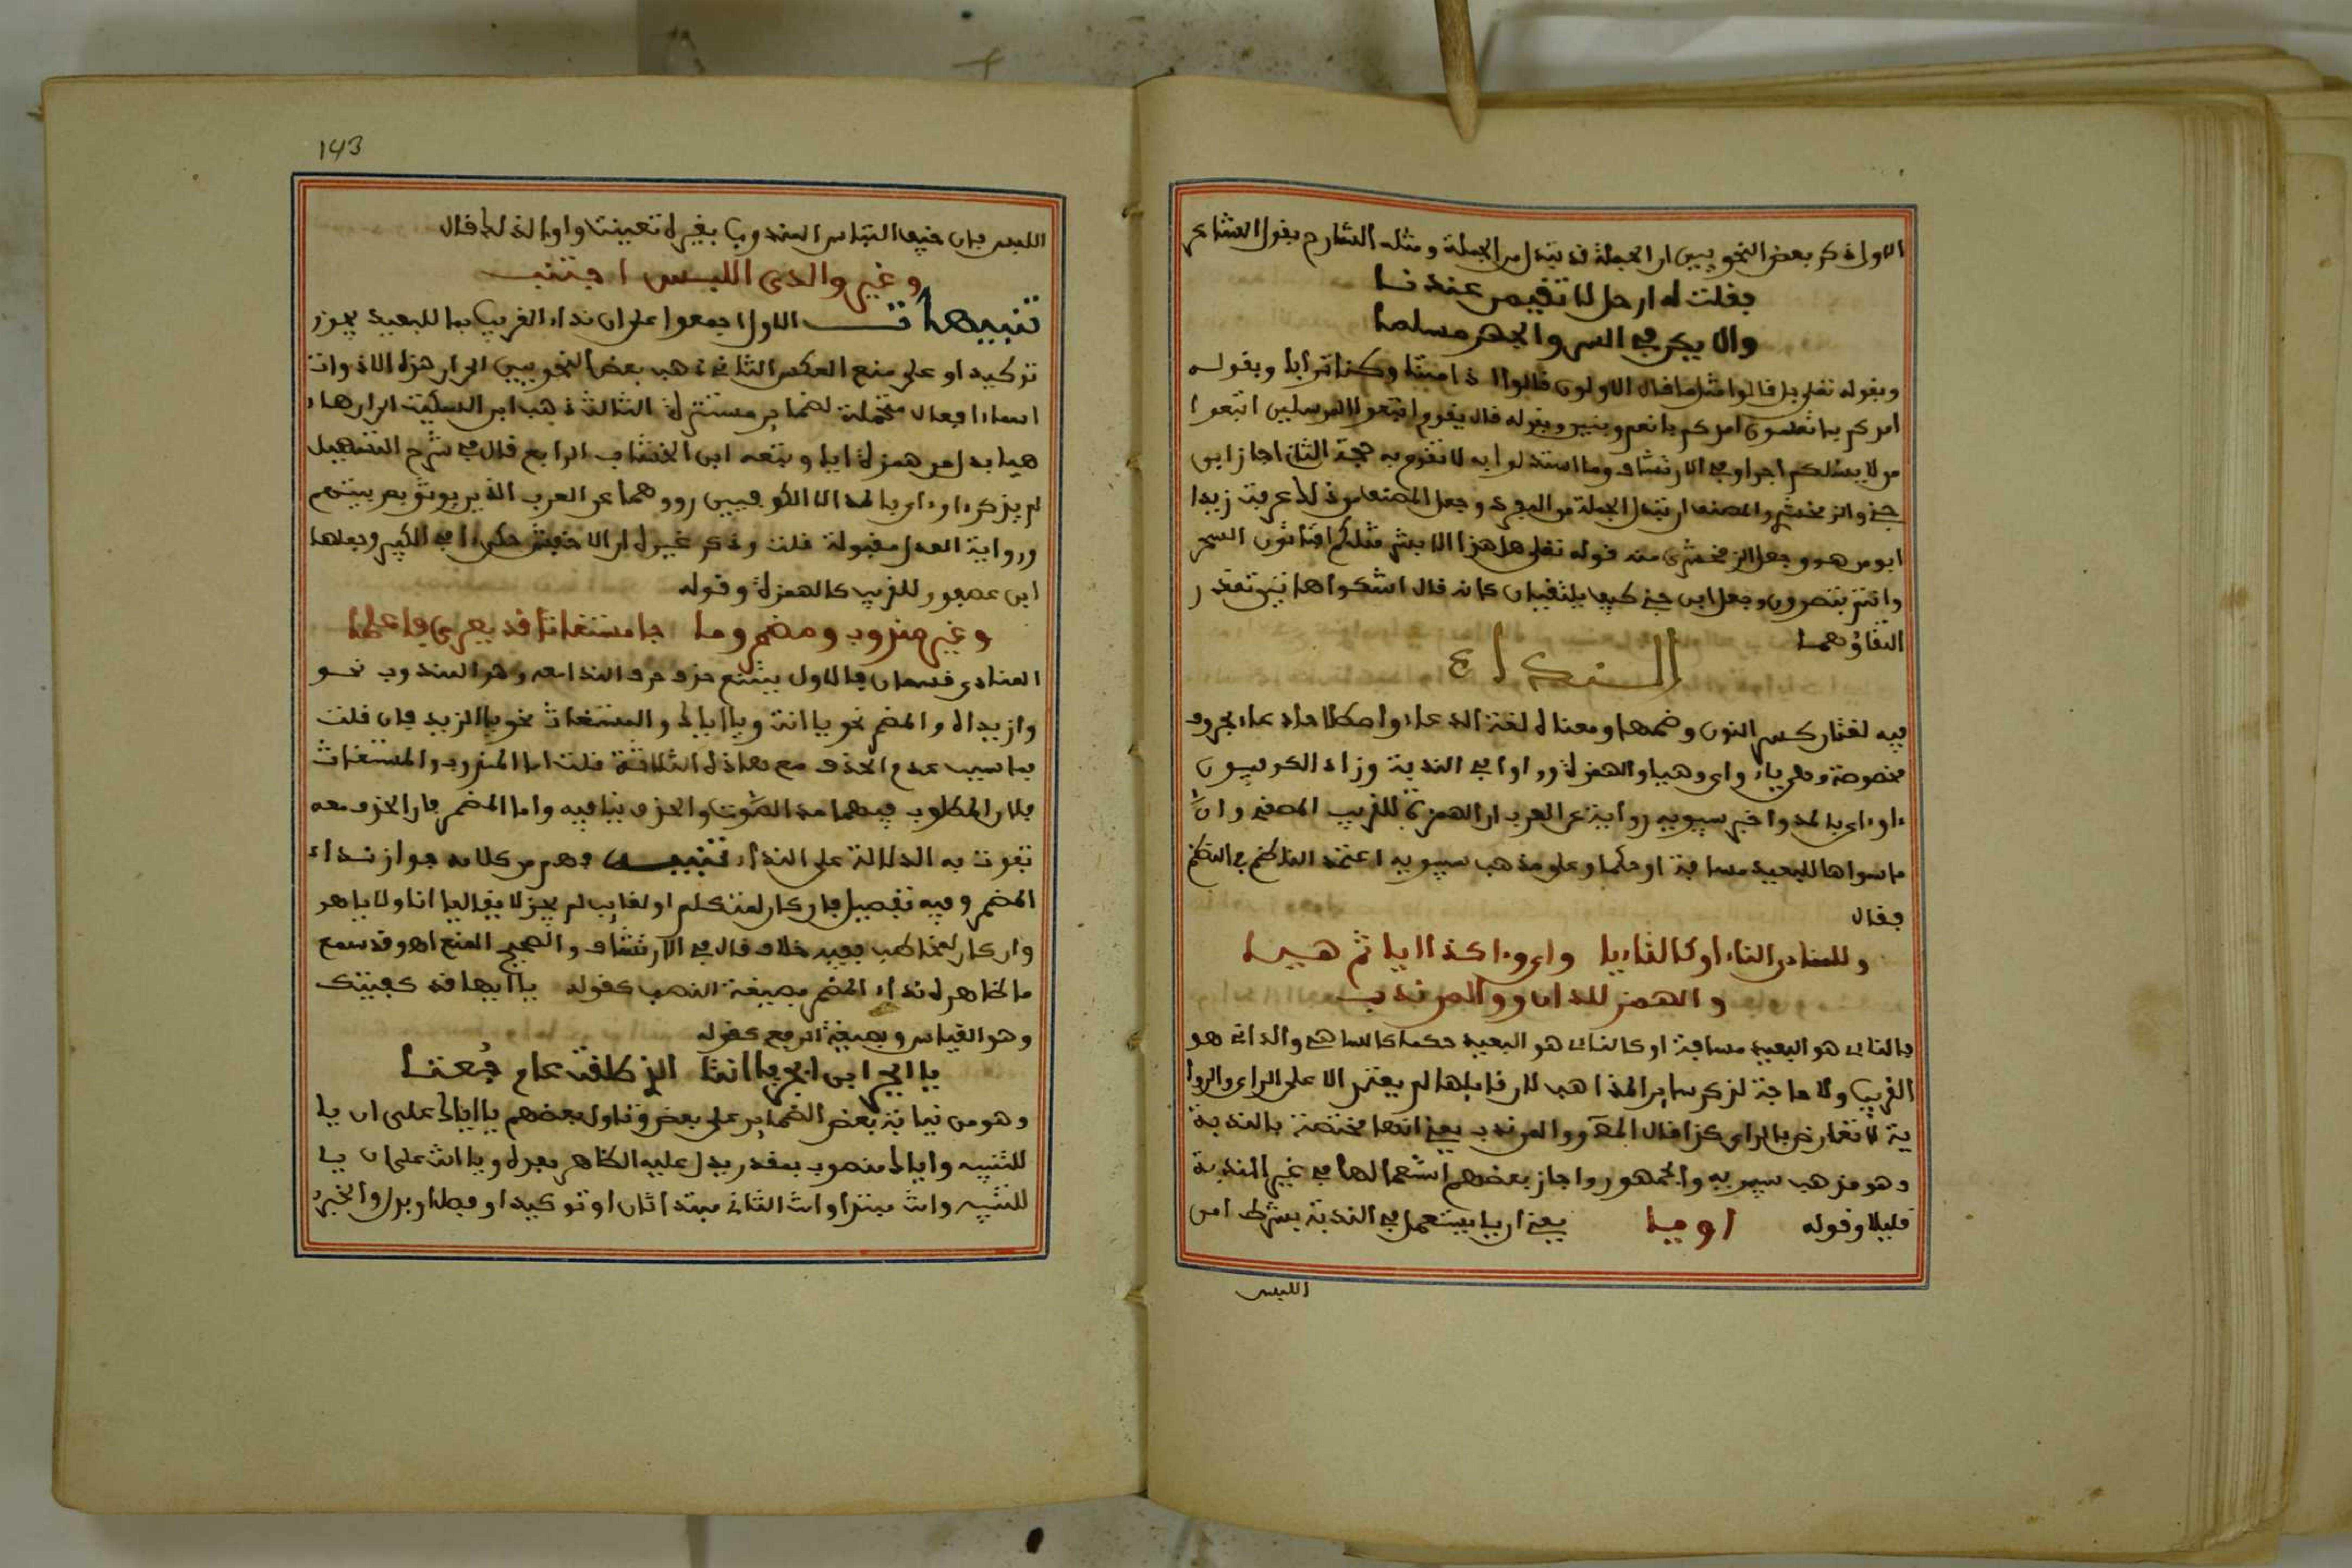 الاول ذكر بعض النحويين ان الجملة قد تبدل من الجملة ومثله الشارح بقول الشاعر
فقلت له ارحل لا تقيمن عندنا
والا فكن في السر والجهر مسلما
وبقوله تعلى بل قالوا مثل ما قال الاولون قالوا اذا متنا وكنا ترابا وبقوله
امدكم بما تعلمون امدكم بانعم وبنين وبقوله قال يقوم اتبعوا المرسلين اتبعوا
من لا يسئلكم اجرا وفي الارتشاف وما استدلوا به لا تقوم به حجة الثان اجاز ابن
جني والزمخشري والمصنف ان تبدل الجملة من المفرد وجعل المصنف من ذلك عرفت زيدا
ابو من هو وجعل الزمخشري منه قوله تعلى هل هذا الا بشر مثلكم افتاتون السحر
وانتم تبصرون وجعل ابن جني كيف يلتقيان كانه قال اشكوا هاتين تعذر
التقاؤهما
النداء
فيه لغتان كسر النون وضمها ومعناه لغة الدعاء واصطلاحا دعاء بحروف
مخصوصة وهي ياء واي وهيا والهمزة ووا وا في الندبة وزاد الكوفيون
ءا وءاي بالمد واخبر سيبويه رواية عن العرب ان الهمزة للقريب المصغي وان
ما سواها للبعيد مسافة او حكما وعلى مذهب سيبويه اعتمد الناظم في النظم
فقال
وللمنادى الناء او كالناء يا واي وءا كذا ايا ثم هيا
والهمز للدان ووا لمن ندب
فالناى هو البعيد مسافة او كالناى هو البعيد حكما كالساهي والدانى هو
القريب ولا حاجة لذكر ساير المذاهب لان قايلها لم يعتمد الا على الراي والروا
ية لا تعارض بالراي كذا قال المص ووا لمن ندب يعني انها مختصة بالندبة
وهو مذهب سيبويه والجمهور واجاز بعضهم استعمالها في غير الندبة
قليلا وقوله او يا يعني ان يا يستعمل في الندبة بشرط امن
اللبس
143
اللبس فان خيف التباس المندوب بغيره تعينت وا والى ذلك قال
وغير وا لدى اللبس اجتنب
تنبيهات الاول اجمعوا على ان نداء القريب بما للبعيد يجوز
توكيدا وعلى منع العكس الثاني ذهب بعض النحويين الى ان هذه الادوات
اسماء افعال متحملة لضماير مستترة الثالث ذهب ابن السكيت الى ان هاء
هيا بدل من همزة ايا وتبعه ابن الخشاب الرابع قال في شرح التسهيل
لم يذكر ءا وءاي بالمد الا الكوفيين رووهما عن العرب الذين يوثق بعربيتهم
ورواية العدل مقبولة قلت وذكر غيره ان الاخفش حكى ءا في الكبير وجعلها
ابن عصفور للقريب كالهمزة وقوله
وغير مندوب ومضمر وما جا مستغاثا قد يعرى فاعلما
المنادى قسمان فالاول يمتنع حذف حرف النداء معه وهو المندوب نحو
وازيداه والمضمر نحو يا انت ويا اياك والمستغاث نحو يا لزيد فان قلت
ما سبب عدم الحذف مع هاذه الثلاثة قلت اما المندوب والمستغاث
فلان المطلوب فيهما مد الصوت والحذف ينافيه واما المضمر فلان الحذف معه
تفوت به الدلالة على النداء تنبيه وهم من كلامه جواز نداء
المضمر وفيه تفصيل فان كان لمتكلم او لغايب لم يجز لا يقال يا انا ولا يا هو
وان كان لمخاطب ففيه خلاف قال في الارتشاف والصحيح المنع اه وقد سمع
ما ظاهره نداء المضمر بصيغة النصب كقوله يا اياك قد كفيتك
وهو القياس وبصيغة الرفع كقوله
يا ابجر ابن ابجر يا انتا انت الذي طلقت عام جعتا
وهو من نيابة بعض الضماير على بعض وتاول بعضهم يا اياك على ان يا
للتنبيه واياك منصوب بمقدر يدل عليه الظاهر بعده ويا انت على ان يا
للتنبيه وانت مبتدا وانت الثاني مبتدا ثان او توكيد او فصل او بدل والخبر